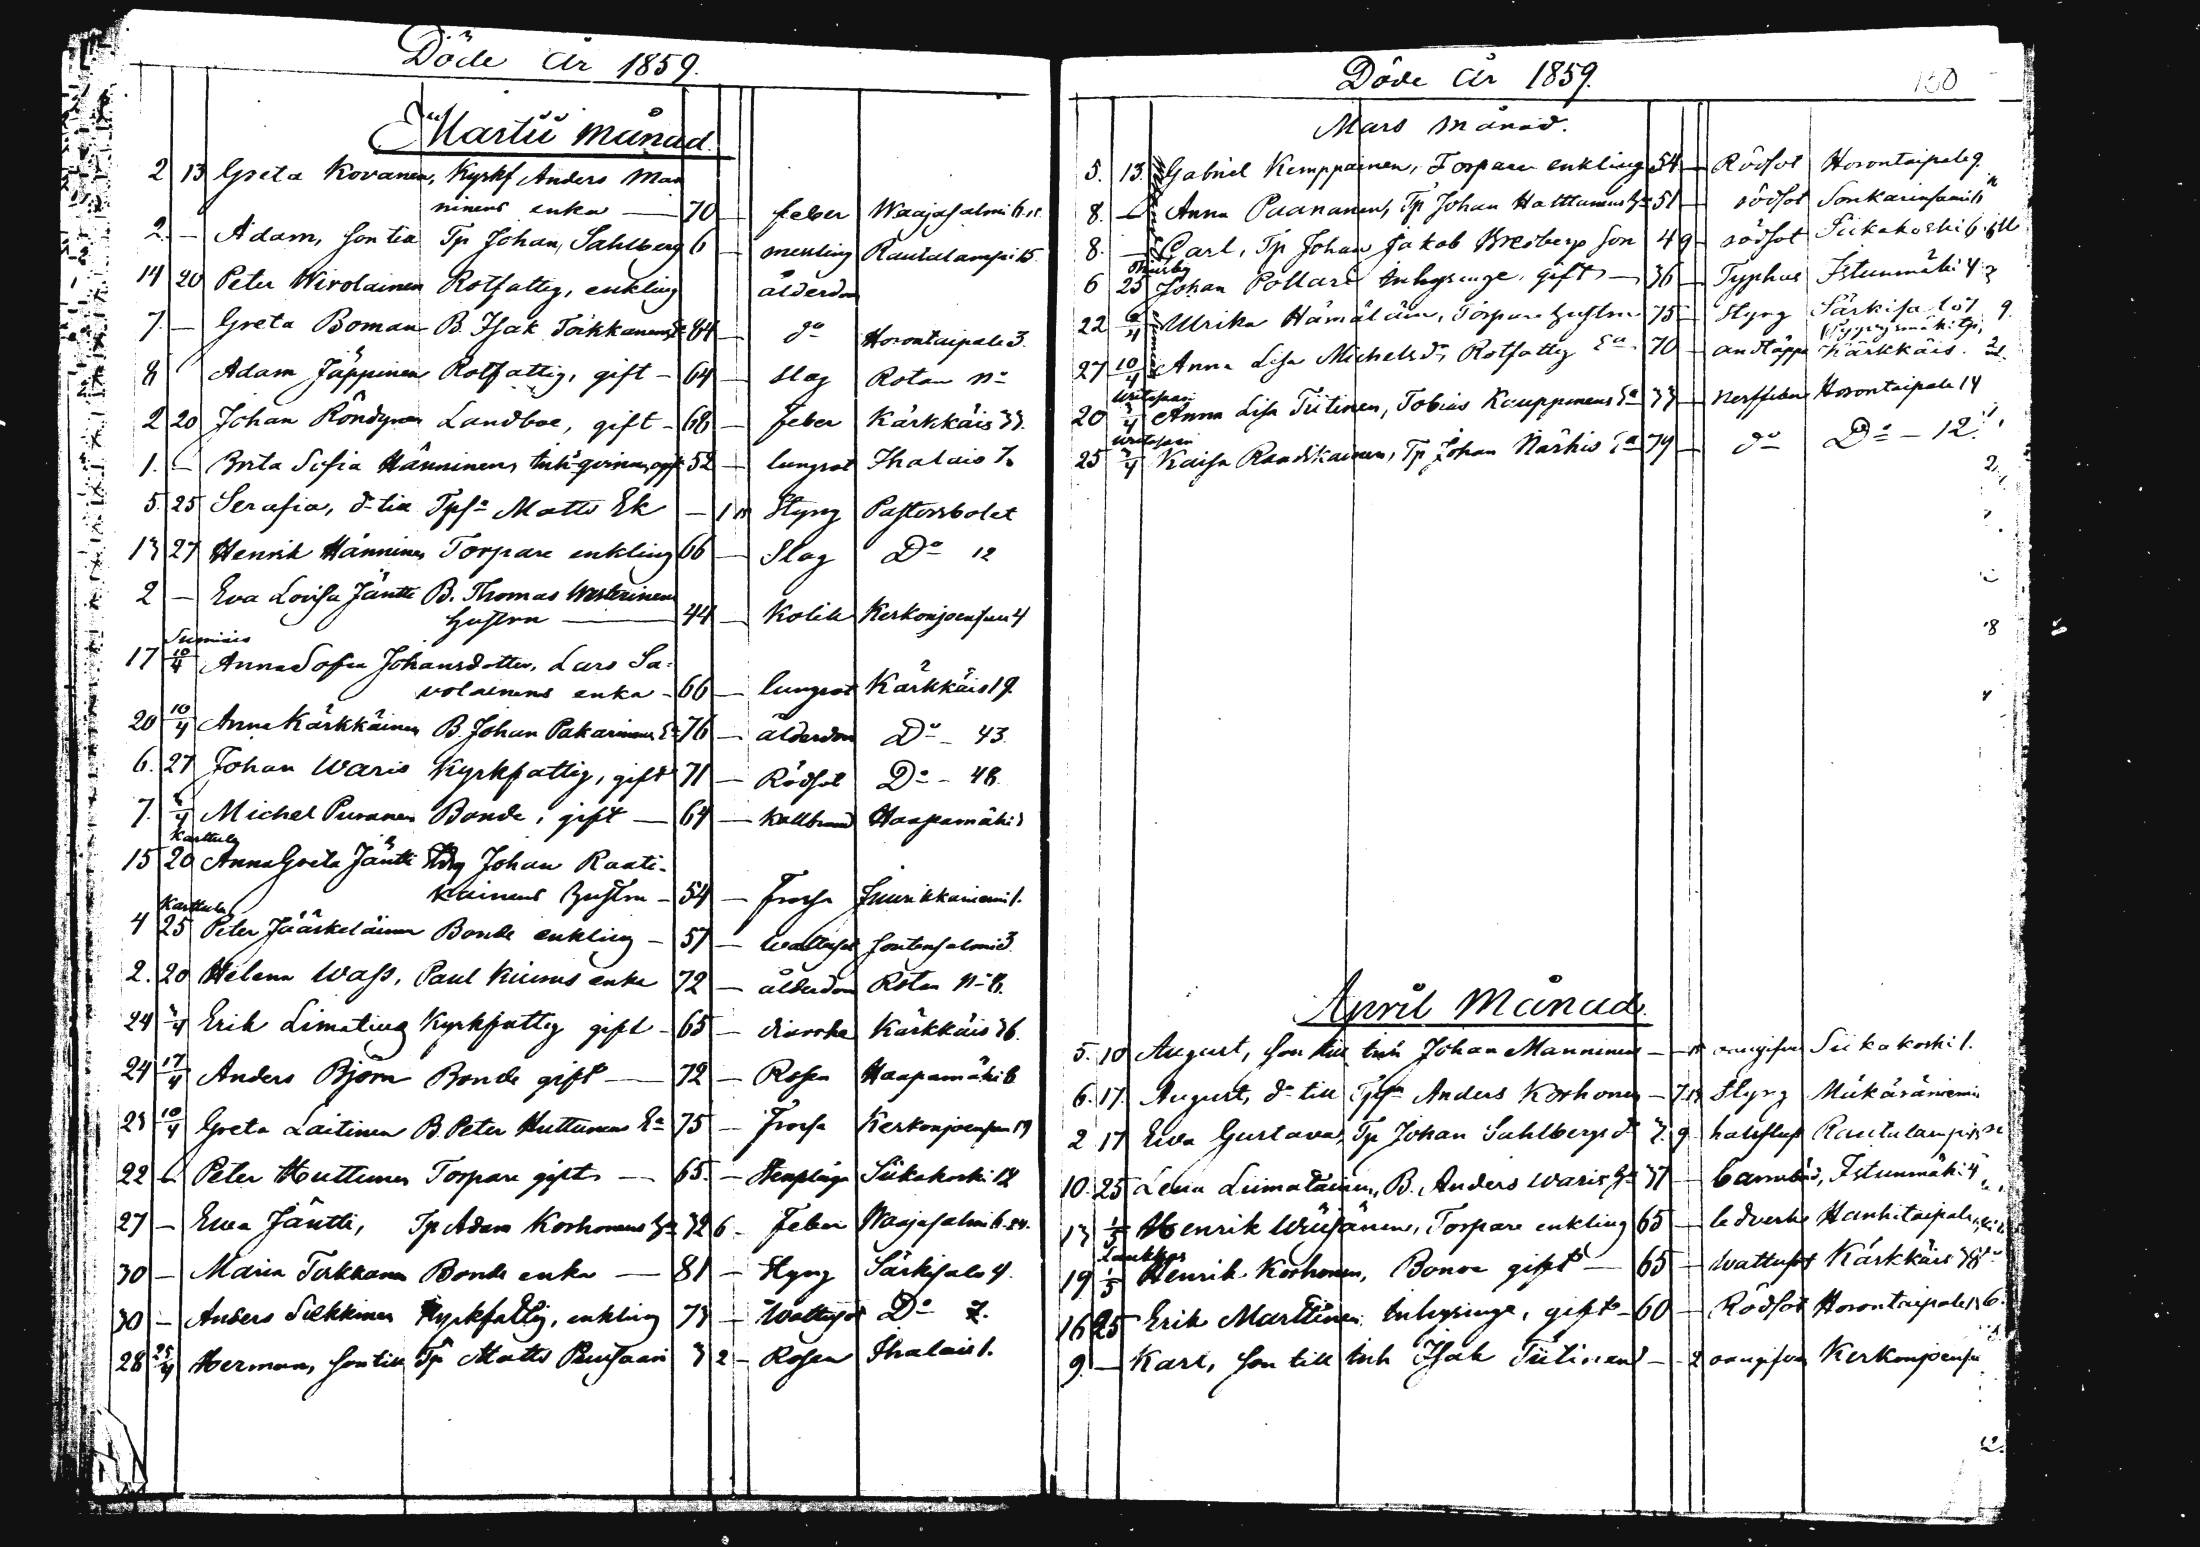 Döde år 1859.
Martii månad.
2 13 Greta Kovanen, Kyrkf Anders Man
ninens enka — 70 — feber Waajasalmi 6.
2. — Adam, son till Tp Johan Sahlberg 6 — mesling Rautalampi 15.
14 20 Peter Wirolainen Rotfattig, enkling ålderdom
7. — Greta Boman B. Isak Toikkanens 84 — do Horontaipale 3.
8 Adam Jäppinen Rotfattig, gift — 64 — slag Rotan No
2 20 Johan Röndynen Landboe, gift — 68 — feber Kärkkäis 33.
1. — Brita Sofia Hänninen, 52 — lungsot Ihalais 7.
5. 25 Serafia, d. till Matts Ek — 1 Styng Pastorsbolet
13 27 Henrik Hänninen Torpare enkling 66 — Slag Do 12
2 — Eva Lovisa Jäntti B. Thomas Westerinens
hustru — 44 — Kolik Kerkonjoensuu 4
Sumiais
17 10/4 Anna Sofia Johansdotter, Lars Sa-
volainens enka — 66 — lungsot Kärkkäis 19.
20 10/4 Anna Kärkkäinen B. Johan Pakarinens Ea 76 — ålderdom Do — 43.
6. 27 Johan Waris Kyrkfattig, gift 71 — Rödsot Do — 48.
7. Michel Puranen Bonde, gift — 64 — kallbrand Haapamäki 3
Karttula
15 20 Anna Greta Jäntti Johan Raati-
kainens hustru — 54 — Frossa 1.
Karttula
4 25 Peter Jääskeläinen Bonde enkling — 57 — wattusot 3.
2. 20 Helena Wass, Paul Kiurus enka 72 — ålderdom Rotan No 8.
24 Erik Limating Kyrkfattig gift — 65 — diarrhe Kärkkäis 36.
24 17/4 Anders Björn Bonde gift — 72 — Rosen Haapamäki 6
23 10/4 Greta Laitinen B. Peter Huttunens Ea 75 — Frossa Kerkonjoensuu 19
22 Peter Huttunen Torpare gift — 65. — Siikakoski 12
27 — Ewa Jäntti, Tp Adam Korhonens 32 6 — Feber Waajasalmi 6.
30 — Maria Tarkkanen Bonde enka — 81 — Styng Särkisalo 4.
30 — Anders Kyrkfattig, enkling 73 — Wattusot Do 7.
28 25/4 Herman, son till Tp Matts Puusaari 3 2 — Rosen Ihalais 1.
Döde år 1859.
150
Mars månad.
5. 13. Gabriel Kemppainen, Torpare enkling 54 — Rödsot Horontaipale 9.
8. — Anna Paananen, Tp Johan Halttunens 51 — rödsot Sonkarinsaari
8. — Carl, Tp Johan Jakob Kresbergs son 4 9 — rödsot Siikakoski 6.
6 25 Johan Pollari Inhysinge, gift — 36 — Typhus Istunmäki 4
22 Ulrika Hämäläin, Torpare hustru 75 — Styng Särkisalo
27 10/4 Anna Lisa Michelsdr, Rotfattig Ea. 70 — andtäppa Kärkkäis.
20 Anna Lisa Tiitinen, Tobias Kauppinens Ea 33 — Nerffeber Horontaipale 14
25 Kaisa Raudikainen, Tp Johan Närhis Ea 79 — do Do — 12.
April Månad.
5. 10 August, son till Inh Johan Manninen — oangifven Siikakoski 1.
6. 17. August, d. till Anders Korhonen — 7 Styng Mäkäräniemi
2 17 Ewa Gustava, Tp Johan Sahlbergs d. 7. 9 halsfluss Rautalampi
10. 25 Lena Liimatainen, B. Anders Waris 37 — barnbörd, Istunmäki 4
13 1/5 Henrik Wäisänen, Torpare enkling 65 — ledverk Hankitaipale
19 1/5 Henrik Korhonen, Bonde gift — 65 — Wattusot Kärkkäis 38
16 25 Erik Marttinen Inhysinge, gift — 60 — Rödsot Horontaipale
9. — Karl, son till Inh Isak Tiitinen — 2 oangifven Kerkonjoensu